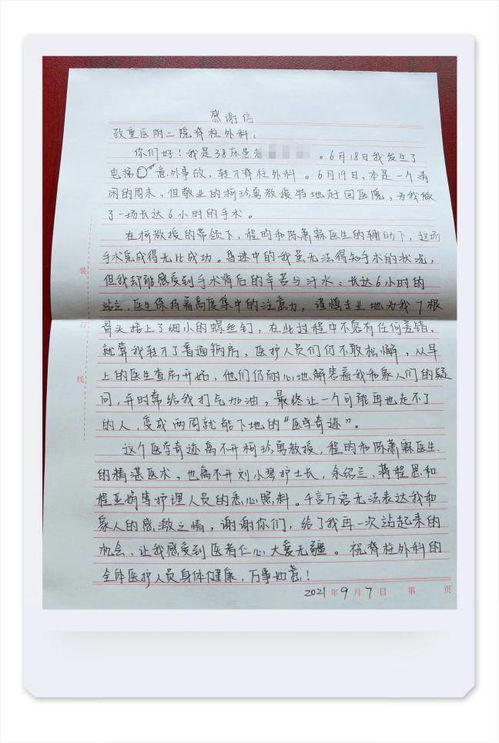 感谢信
致重医附二院脊柱外科:
你们好!我是38床患者 。6月18日我发生了
电梯 意外事故,转才脊柱外科。6月19日,本是一个清
闲的周末,但敬业的柯珍勇教授特地赶回医院,为我做
了一场长达6小时的手术。
在柯教授的带领下,程昀和陈萧霖医生的辅助下,这场
手术完成得无比成功。昏迷中的我虽无法得知手术的状况,
但我却能感受到手术背后的辛苦与汗水:长达6小时的
站立,医生保持着高度集中的注意力,谨慎专业地为我7根
骨头钻上了细小的螺丝钉,在此过程中不容有任何差错。
就算我转才了普通病房,医护人员们仍不敢松懈,从早
上的医生查房开始,他们仍耐心地解答着我和家人们的疑
问,并时常给我打气加油,最终让一个可能再也走不了
的人,变成两周就能下地的“医学奇迹”。
这个医学奇迹离不开柯珍勇教授,程昀和陈萧霖医生
的精湛医术,也离不开刘小琴护士长,余绍兰、蒋程思和
程亚娟等护理人员的悉心照料。千言万语无法表达我和
家人的感激之情,谢谢你们,给了我再一次站起来的
机会,让我感受到医者仁心大爱无疆。祝脊柱外科的
全体医护人员身体健康,万事如意!
2021年9月7日 第 页
装
订
线